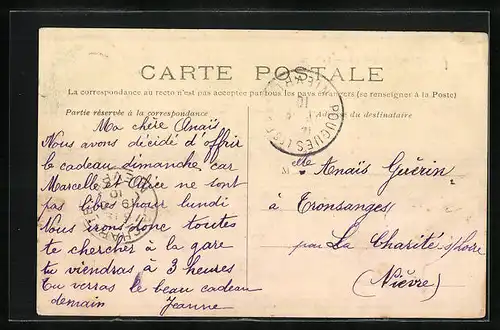 CARTE POSTALE
La correspondance au recto n'est pas acceptée par tous les pays étrangers (se renseigner à la Poste)
Partie réservée à la correspondance
du destinataire
Ma chère Anaïs
Nous avons décidé d'offrir
le cadeau dimanche, car
Marcelle et Alice ne sont
pas libres pour lundi
Nous irons donc toutes
te chercher à la gare
tu viendras à 3 heures
Tu verras le beau cadeau
demain Jeanne
POUGUES
NIÈVRE
Mlle Anaïs Guérin
à Tronsanges
par La Charité s/Loire
(Nièvre)